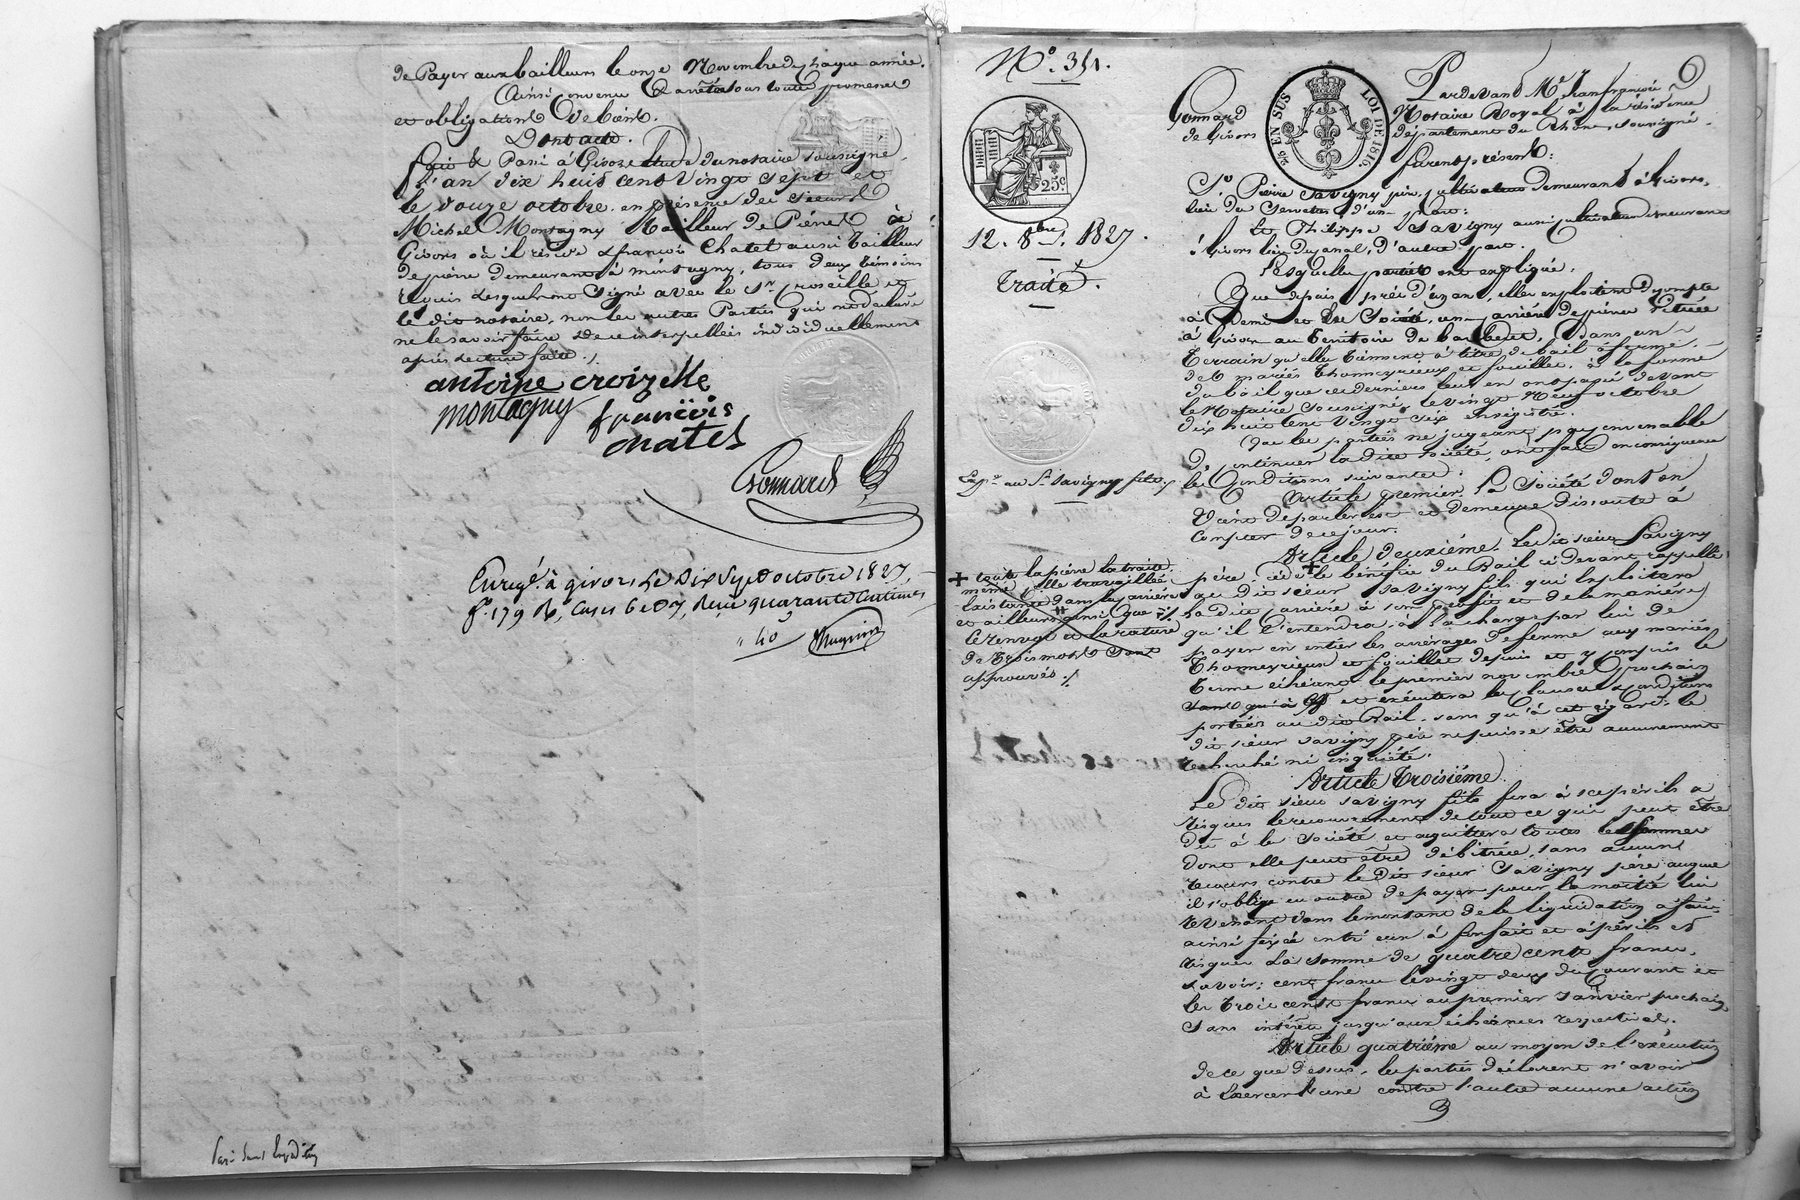 de Payer aux bailleurs le onze Novembre de chaque année.
Ainsi convenu & arrêté sous toutes promesses
et obligations de Droit.
Dont acte.
fait & Passé à Givors étude du notaire soussigné,
l'an dix huit cent vingt sept et
le douze octobre. en présence des sieurs
Michel Montagny Tailleur de Pierres à
Givors où il réside & françois Chatel aussi Tailleur
de pierre demeurant à montagny, tous deux témoins
requis lesquels ont signé avec le Sr. Croizelle et
le dit notaire, non les autres Parties qui ont déclaré
ne le savoir faire de ce interpellées individuellement
après lecture faite ./.
antoine croizelle
montagny françois
chatel
Gonnard
Enregé. à givors, Le Dix Sept octobre 1827,
fo. 179 Ro, Cases 6 et 7, Reçu quarante Centimes
" 40
No. 351.
25c
12. 8bre. 1827.
Traité.
Exp. au Sr. Savigny fils
+ toute la pierre la traite
même, elle travaillée
laissante dans la carrière
et ailleurs ainsi que ./.
le renvoi et la rature
de trois mots sont
approuvés ./.
Gonnard
de Givors
EN SUS LOI DE 1816.
Pardevant Me. Jean françois
Notaire Royal à la résidence
département du Rhône, soussigné.
furent présents:
Sr. Pierre Savigny père, cultivateur demeurant à Givors,
lieu du d'une part:
Et Philippe Savigny aussi cultivateur demeurant
à Givors lieu du canal, d'autre part.
Lesquelles parties ont expliqué,
Que depuis près d'un an, elles exploitent de compte
à Demi et de Société, une carrière de pierre située
à Givors au Territoire de Dans un
Terrain qu'elles tiennent à titre de bail à ferme
des mariés Thomeyrieux et fouillet, à la forme
du bail que ces derniers leur en ont passé devant
le Notaire soussigné, le vingt Neuf octobre
dix huit cent vingt six enregistré.
Que les parties ne jugeant pas convenable
de continuer la dite société, ont fait en conséquence
les Conditions suivantes:
Article premier. La Société dont on
vient de parler est et demeure dissoute à
compter de ce jour.
Article deuxième. Le dit sieur Savigny
père, cède + le bénéfice du Bail ci devant rappellé
au dit sieur Savigny fils qui exploitera
la dite carrière à son profit et de la manière
qu'il l'entendra, à la charge par lui de
payer en entier les arrérages de ferme aux mariés
Thomeyrieux et fouillet depuis et y compris le
terme échéant le premier novembre prochain
et exécutera les clauses & conditions
portées au dit Bail, sans qu'à cet égard, le
dit sieur Savigny père ne puisse être aucunement
recherché ni inquiété.
Article troisième
Le dit sieur Savigny fils fera à ses périls &
risques le recouvrement de tout ce qui peut être
dû à la Société et acquittera toutes les sommes
dont elle peut être débitrice, sans aucun
recours contre le dit sieur Savigny père auquel
il s'oblige en outre de payer pour la moitié lui
revenant dans le montant de la liquidation à faire
ainsi fixée entr'eux à forfait et à périls et
risques la somme de quatre cents francs,
savoir: cent francs le vingt deux du Courant et
les trois cents francs au premier Janvier prochain
sans intérêts jusqu'aux échéances respectives.
Article quatrième au moyen de l'exécution
de ce que dessus, les parties déclarent n'avoir
à exercer l'une contre l'autre aucune action